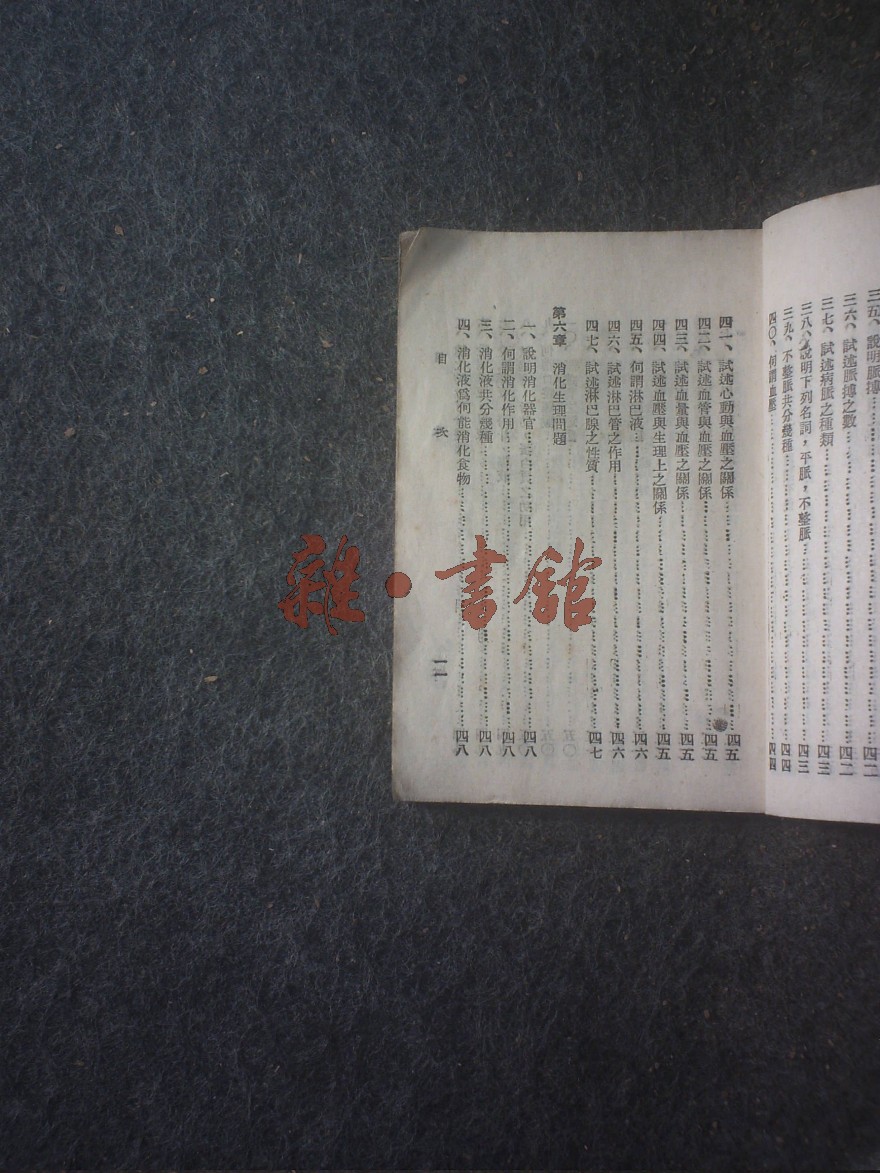 三五、說明脈搏……四二
三六、試述脈搏之數……四二
三七、試述病脈之種類……四三
三八、說明下列名詞，平脈，不整脈……四三
三九、不整脈共分幾種……四四
四〇、何謂血壓……四四
四一、試述心動與血壓之關係……四五
四二、試述血管與血壓之關係……四五
四三、試述血量與血壓之關係……四五
四四、試述血壓與生理上之關係……四五
四五、何謂淋巴液……四六
四六、試述淋巴管之作用……四六
四七、試述淋巴腺之性質……四七
第六章 消化生理問題
一、說明消化器官……四八
二、何謂消化作用……四八
三、消化液共分幾種……四八
四、消化液爲何能消化食物……四八
目次
一一
雜·書館